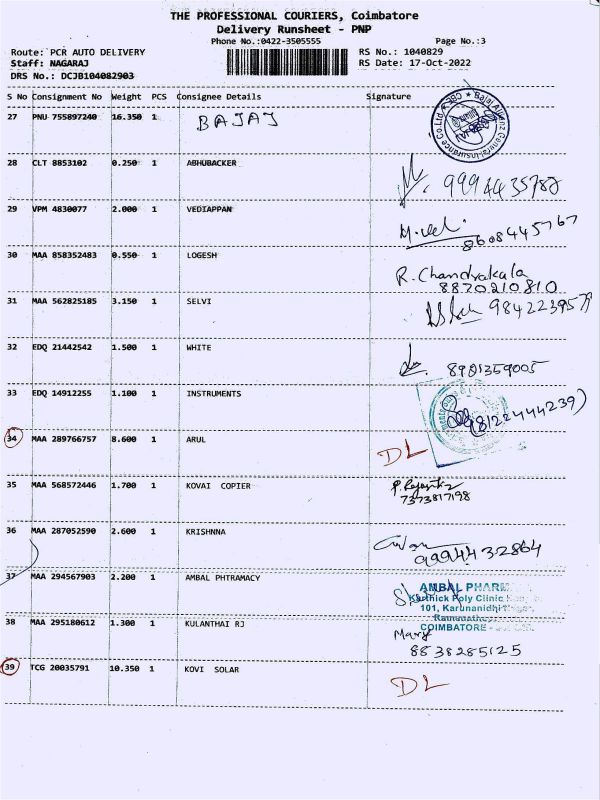 THE PROFESSIONAL COURIERS, Coimbatore
Delivery Runsheet - PNP
Phone No.:0422-3505555 Page No.:3
Route: PCR AUTO DELIVERY RS No.: 1040829
Staff: NAGARAJ RS Date: 17-Oct-2022
DRS No.: DCJB104082903
S No Consignment No Weight PCS Consignee Details Signature
27 PNU 755897240 16.350 1 BAJAJ Bajaj Allianz General Insurance Co. Ltd.
28 CLT 8853102 0.250 1 ABHUBACKER 9994435788
29 VPM 4830077 2.000 1 VEDIAPPAN 8608445767
30 MAA 858352483 0.550 1 LOGESH R. Chandrakala
8870210810
31 MAA 562825185 3.150 1 SELVI 9842239579
32 EDQ 21442542 1.500 1 WHITE 8981359005
33 EDQ 14912255 1.100 1 INSTRUMENTS (9812244239)
34 MAA 289766757 8.600 1 ARUL DL
35 MAA 568572446 1.700 1 KOVAI COPIER
7373817198
36 MAA 287052590 2.600 1 KRISHNNA 9994432864
37 MAA 294567903 2.200 1 AMBAL PHTRAMACY AMBAL PHARM
Karthick Poly Clinic
101, Karunanidhi
COIMBATORE -
38 MAA 295180612 1.300 1 KULANTHAI RJ Mary
8838285125
39 TCG 20035791 10.350 1 KOVI SOLAR DL